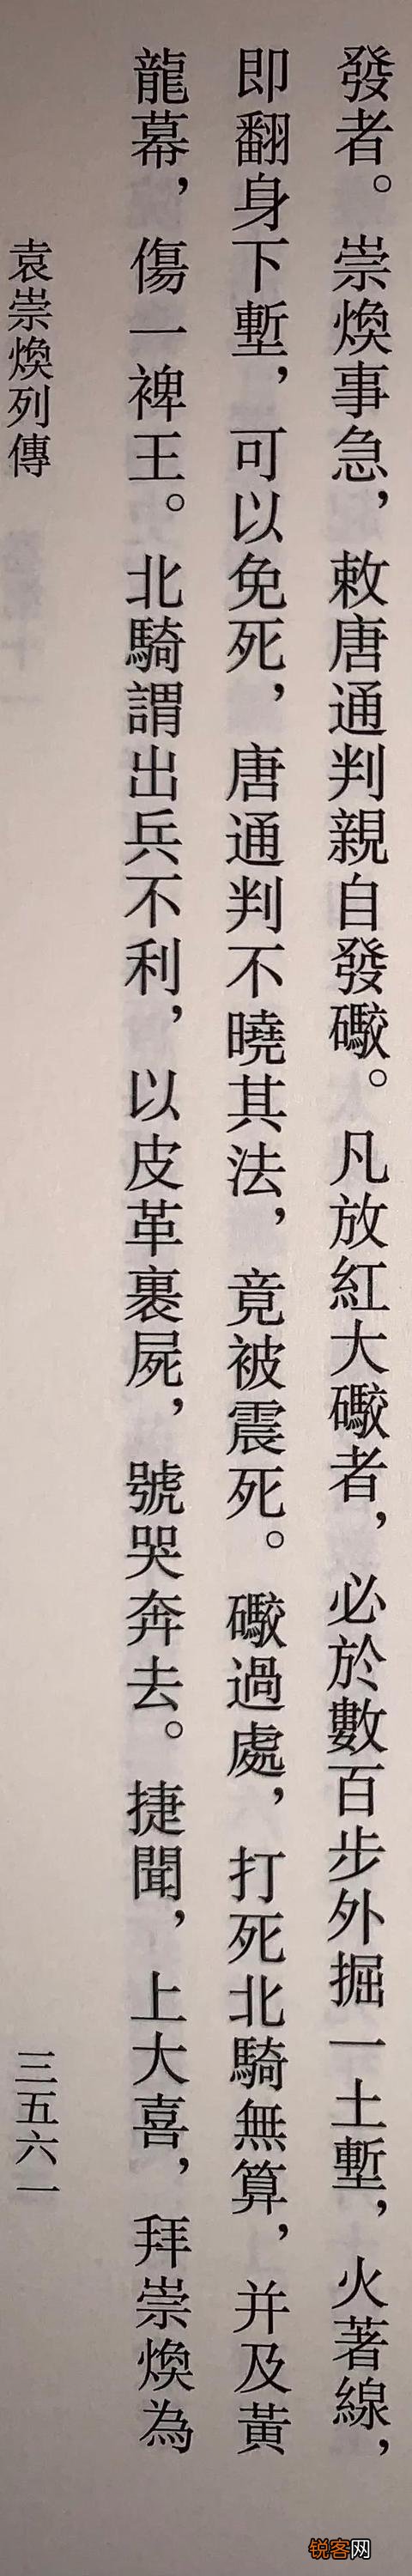 發者。崇煥事急，敕唐通判親自發礮。凡放紅大礮者，必於數百步外掘一土塹，火著線，
即翻身下塹，可以免死，唐通判不曉其法，竟被震死。礮過處，打死北騎無算，并及黃
龍幕，傷一裨王。北騎謂出兵不利，以皮革裹屍，號哭奔去。捷聞，上大喜，拜崇煥為
袁崇煥列傳
三五六一
锐客网